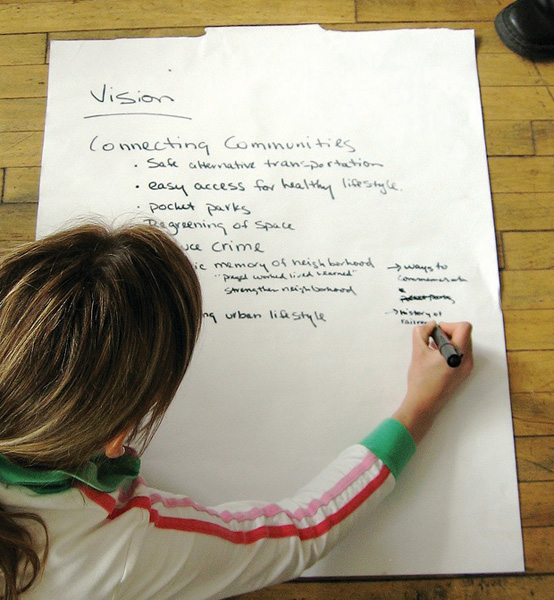 Vision
Connecting Communities
· Safe alternative transportation
· easy access for healthy lifestyle.
· pocket parks
Regreening of Space
uce crime
ic memory of neighborhood
"prayed worked lived learned"
strengthen neighborhood
ng urban lifestyle
→ ways to
commemorate
→ history of